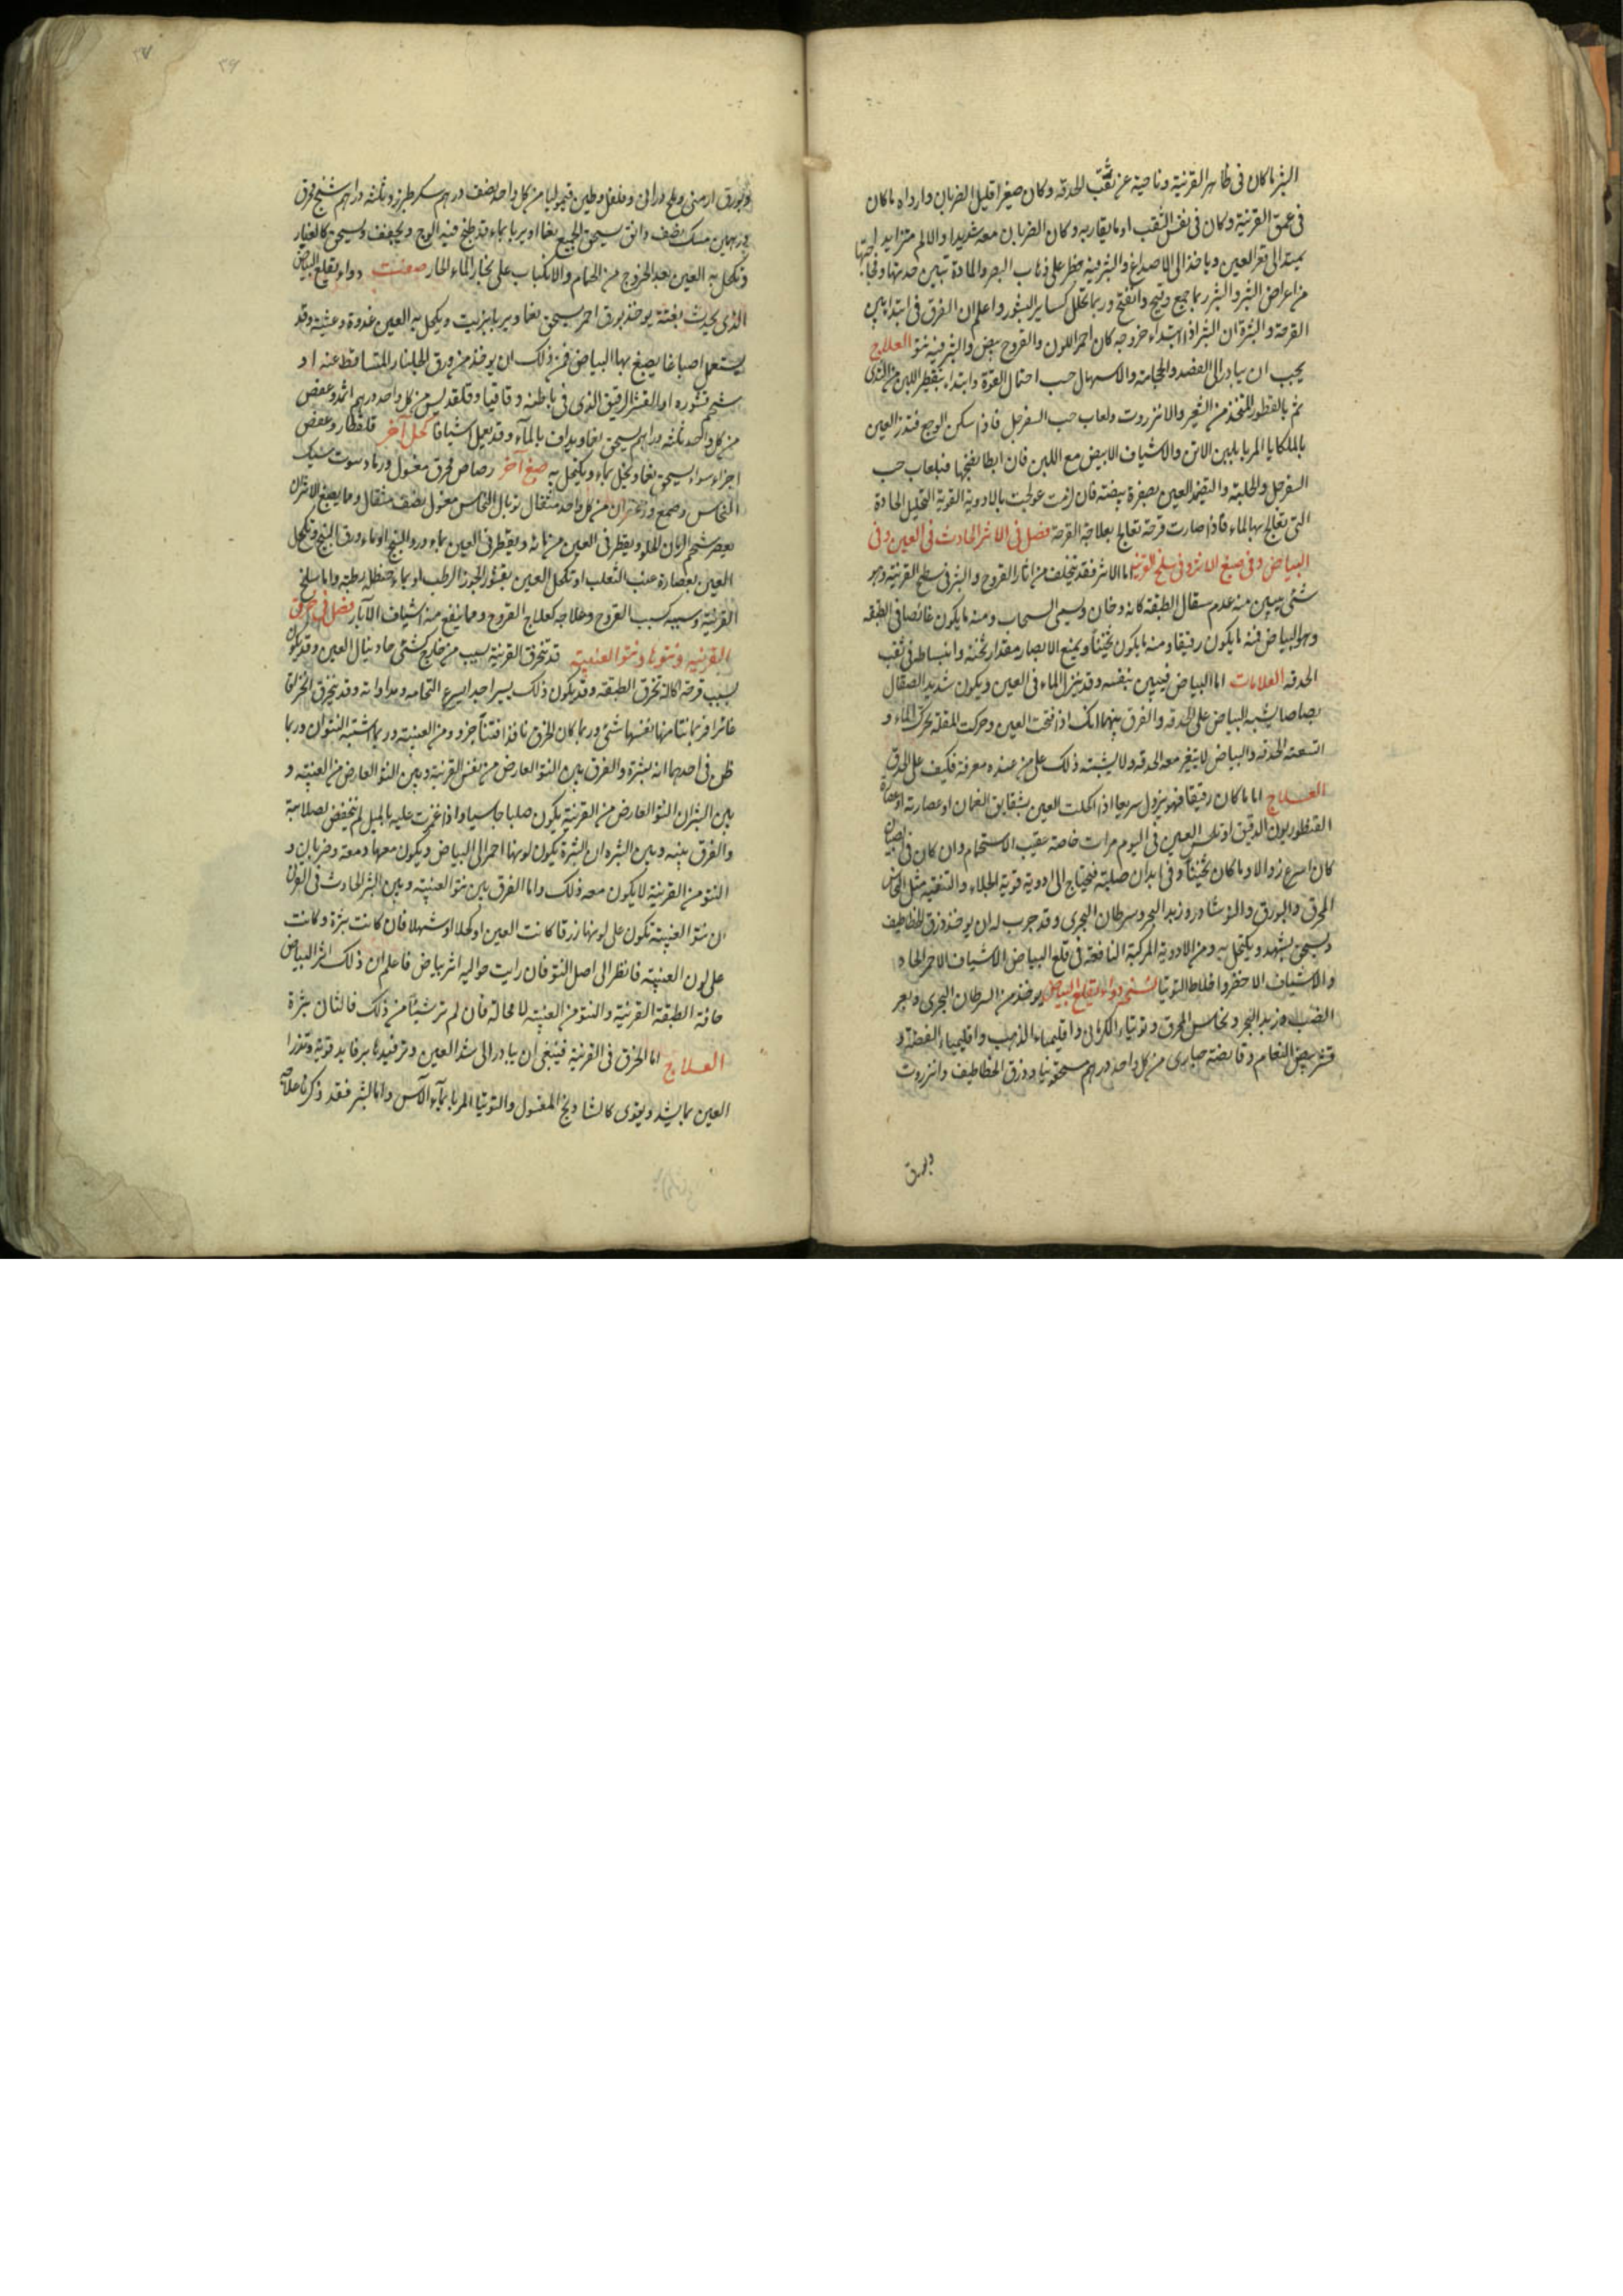 البثر ما كان فى ظاهر القرنية وناحية عن ثقب الحدقه وكان صغيرا قليل الضربان وارداه ما كان
فى عمق القرنية وكان فى نفس الثقب او ما يقاربه وكان الضربان معه شديدا والالم متزايد
يمتد الى قعر العين وياخذ الى الاصداغ والبثر فيه خطر على ذهاب البصر والمادة تبين حدتها
من اعراض البثر والبثر ربما جمع وقيح وانفتح وربما تحلل كساير البثور واعلم ان الفرق فى ابتدا بين
القرحة والبثرة ان البثر اذا ابتداء خروجه كان احمر اللون والقروح بيض والبثر فيه نتو العلاج
يجب ان يبادر الى الفصد والحجامة والاسهال حسب احتمال القوة وابتداء بتقطير اللبن من الثدى
ثم بالقطور المتخذ من الشعير والانزروت ولعاب حب السفرجل فاذا سكن الوجع فتذر العين
بالملكايا المربا بلبن الاتن والاشياف الابيض مع اللبن فان ابطا نضجها فبلعاب حب
السفرجل والحلبة والتضميد العين بصفرة بيضته فان ازمنت عولجت بالادوية القوية التحليل الحادة
التى تعالج بها الماء فاذا صارت قرحة تعالج بعلاجة القرحة فصل فى الاثر الحادث فى العين وفى
البياض وفى صبغ الاثر وفى سلخ القرنية اما الاثر فقد يتخلف من اثار القروح والبثر فى سطح القرنية وهو
شئ يبين منه عدم سقال الطبقة كانه دخان ويسمى السحاب ومنه ما يكون غائصا فى الطبقه
وهو البياض فمنه ما يكون رفيقا ومنه ما يكون ثخينا ويمنع الابصار مقدار ثخنه وانبساطه فى ثقب
الحدقه العلامات اما البياض فيبين بنفسه وقد ينزل الماء فى العين ويكون شديد الصقال
بصاصا يشبه البياض على الحدقه والفرق بينهما انك اذا فتحت العين وحركت المقلة تحرك الماء و
اتسعت الحدقه والبياض لا يتغير معه الحدقه ولا يشبته ذلك على من عنده معرفة فكيف على الحذق
العلاج اما ما كان رفيقا فهو يزول سريعا اذا اكحلت العين بشقايق النعمان او عصارته او عصارة
القنطوريون الدقيق او تلحس العين فى اليوم مرات خاصة عقيب الاستحمام وان كان فى الصبيان
كان اسرع زوالا وما كان ثخينا وفى ابدان صلبة فيحتاج الى ادوية قوية الجلاء والتنقية مثل النحاس
المحرق والبورق والنوشادر وزبد البحر وسرطان البحرى وقد جرب له ان يوخذ ذرق الخطاطيف
ويسحق بشهد ويكتحل به ومن الادوية المركبة النافعة فى قلع البياض الاشياف الاحمر الحاد
والاشياف الاخضر واخلاط التوتيا نسخه دواء يقلع البياض يوخذ من السرطان البحرى وبعر
الضب وزبد البحر ونحاس المحرق وتوتياء الكرمانى واقليمياء الذهب واقليمياء الفضة و
قشر بيض النعام وقابضة حبارى من كل واحد درهم مسحقونيا وذرق الخطاطيف وانزروت
وبورق
وبورق ارمنى وملح درانى وفلفل وطين قيموليا من كل واحد نصف درهم سكر طبرزد ثلثة دراهم شنج محرق
درهمين مسك نصف دانق يسحق الجميع نعما او يربا بماء قد طبخ فيه الوج ويجفف ويسحق كالغبار
وتكحل به العين بعد الخروج من الحمام والانكباب على بخار الماء الحار صفت دواء يقلع البياض
الذى يحدث بغتة يوخذ بورق احمر يسحق نعما ويربا بزيت ويكحل به العين غدوة وعشية وقد
يستعمل اصباغا يصبغ بها البياض فمن ذلك ان يوخذ من ورق الجلنار المتساقط عنه او
شحم قشوره او القشر الرقيق الذى فى باطنه وقاقيا وقلقديس من كل واحد درهم اثمد وعفص
من كل واحد ثلثه دراهم يسحق نعما ويداف بالماء وقد يعمل اشيافا كحل آخر قلقطار وعفص
اجزاء سواء يسحق نعما ويخل بماء ويكتحل به صبغ آخر رصاص محرق مغسول ورماد سوت سبك
النحاس وصمغ وزعفران من كل واحد مثقال توبال النحاس مغسول نصف مثقال وما يصبغ الاثر ان
يعصر شحم الرمان الحلو ويقطر فى العين من مائه ويقطر فى العين بماء ورد البنج او ماء ورق البنج وتكحل
العين بعصارة عنب الثعلب او تكحل العين بقشور الجوز الرطب او بماء حنظل رطبه واما سلخ
القرنية وسببه كسبب القروح وعلاجه كعلاج القروح ومما ينفع منه اشياف الآبار فصل فى خرق
القرنيه ونتوها ونتو العنبيه قد تنخرق القرنية بسبب من خارج كشئ حاد ينال العين وقد يكون
بسبب قرحة اكاله تخرق الطبقة وقد يكون ذلك يسيرا جدا يسرع التحامه ومداواته وقد ينخرق انخراقا
غائرا فربما نتا منها نفسها شئ وربما كان الخرق نافذا فنتا جزو من العنبيه وربما اشتبه النتوان وربما
ظن فى احدهما انه بثرة والفرق بين النتو العارض من نفس القرنية وبين النتو العارض من العنبيه و
بين البثر ان النتو العارض من القرنية يكون صلبا جاسيا واذا غمزت عليه بالميل لم ينخفض لصلابته
والفرق بينه وبين البثره ان البثرة يكون لونها احمر الى البياض ويكون معها دمعه وضربان و
النتو من القرنية لا يكون معه ذلك واما الفرق بين نتو العنبيه وبين البثر الحادث فى القرنى
ان نتو العنبيه تكون على لونها زرقا كانت العين او كحلا او شهلا فان كانت بثرة وكانت
على لون العنبيه فانظر الى اصل النتو فان رايت حواليه اثر بياض فاعلم ان ذلك اثر البياض
حافة الطبقة القرنية والنتو من العنبيه لا محالة فان لم تر شيئا من ذلك فالثان بثرة
العلاج اما الخرق فى القرنية فينبغى ان يبادر الى شد العين وترفيدها برفايد قوية وتذر
العين بما يشد ويقوى كالشادنج المغسول والتوتيا المربا بماء الآس واما البثر فقد ذكرنا علاجه